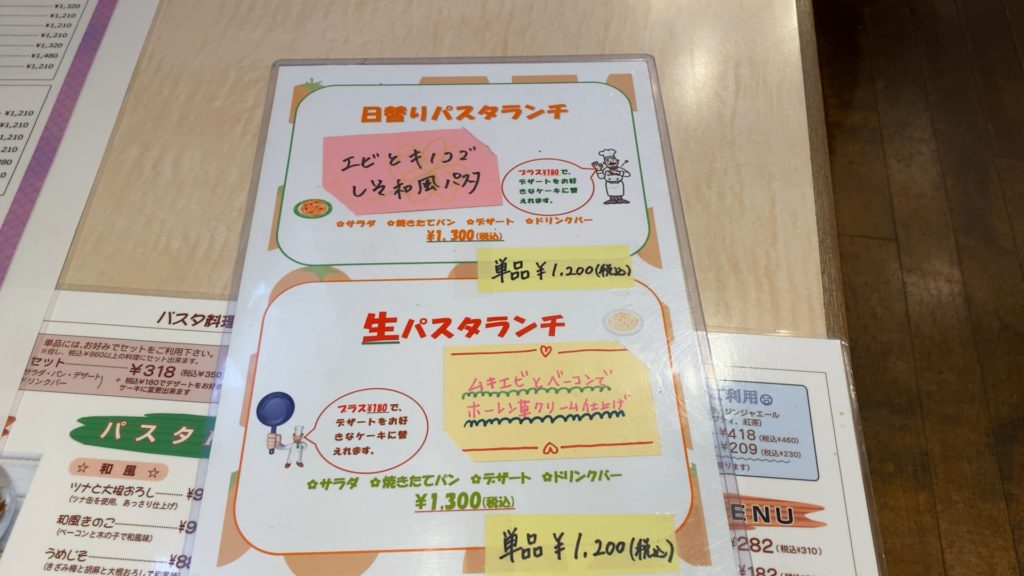 ¥1,320
¥1,210
¥1,210
¥1,210
¥1,320
¥1,480
¥1,210
¥1,210
¥1,210
¥1,210
¥1,210
日替りパスタランチ
エビとキノコで
しそ和風パスタ
プラス¥180で、
デザートをお好
きなケーキに替
えれます。
☆サラダ ☆焼きたてパン ☆デザート ☆ドリンクバー
¥1,300(税込)
単品¥1,200(税込)
生パスタランチ
ムキエビとベーコンで
ホーレン草クリーム仕上げ
プラス¥180で、
デザートをお好
きなケーキに替
えれます。
☆サラダ ☆焼きたてパン ☆デザート ☆ドリンクバー
¥1,300(税込)
単品¥1,200(税込)
パスタ料理
単品には、お好みでセットをご利用下さい。
※但し、税込¥860以上の料理にセット出来ます。
セット
¥318(税込¥350)
サラダ・パン・デザート
ドリンクバー
+税込¥180でデザートをお好
ケーキに変更出来ます
パスタ
☆和風☆
ツナと大根おろし
(ツナ缶を使用、あっさり仕上げ)
和風きのこ
(ベーコンと木の子で和風味)
うめしそ
(きざみ梅と胡麻と大根おろしで和風味)
ご利用
ジンジャエール
ティ、紅茶)
¥418(税込¥460)
¥209(税込¥230)
ENU
¥282(税込¥310)
¥182